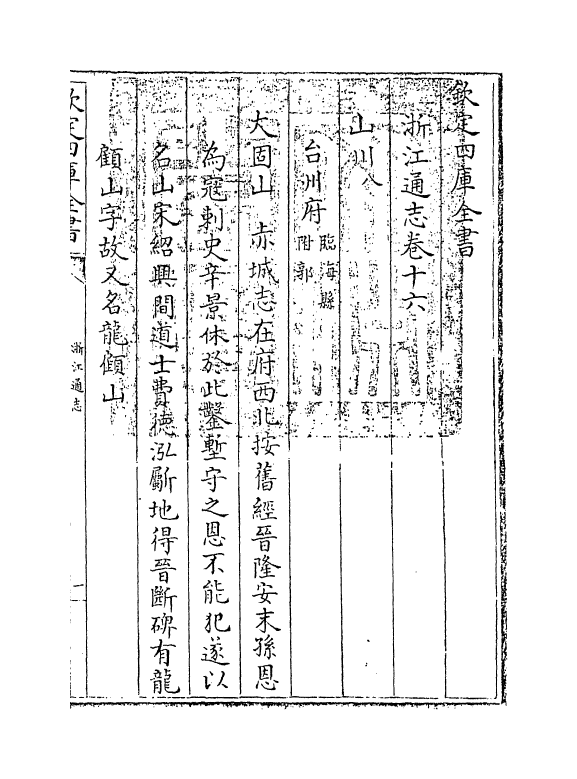 欽定四庫全書
浙江通志卷十六
山川八
台州府
臨海縣
附郭
大固山 赤城志在府西北按舊經晉隆安末孫恩
為寇刺史辛景休於此鑿塹守之恩不能犯遂以
名山宋紹興間道士費德泓斸地得晉斷碑有龍
顧山字故又名龍顧山
欽定四庫全書
浙江通志
一